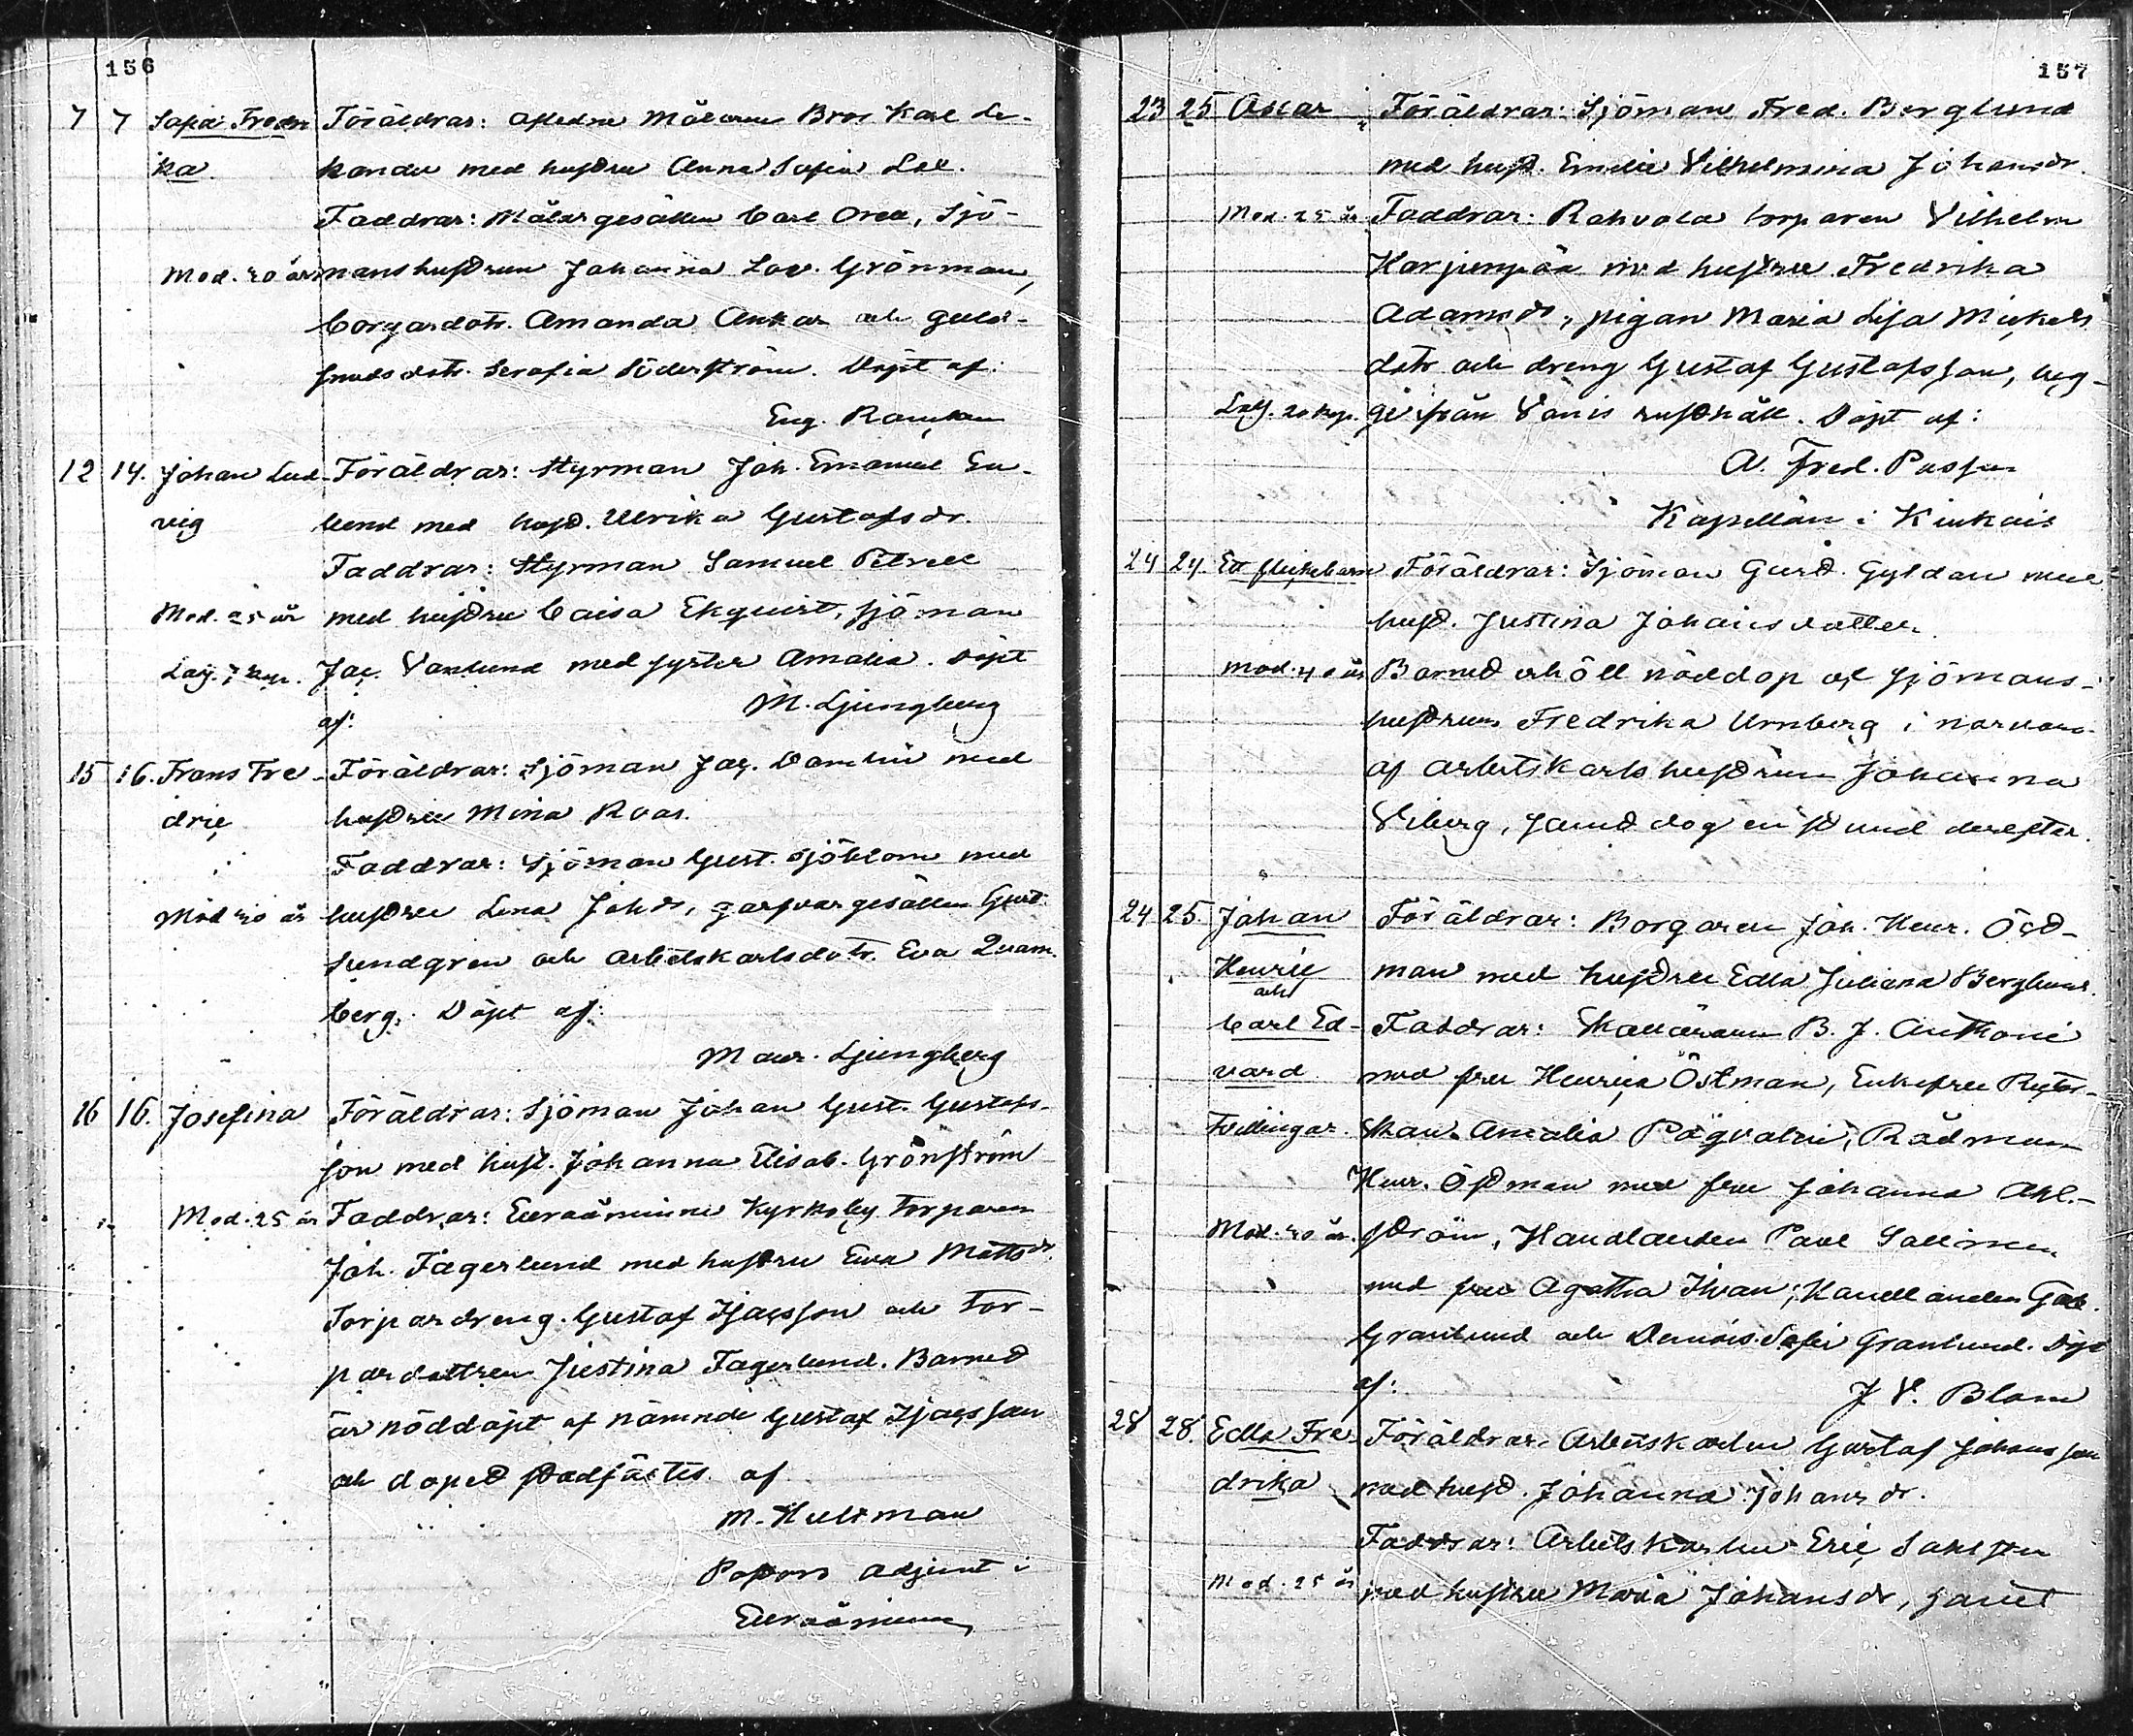 156
7 7 Sofia Fredri Föräldrar: afledne Målaren Bror Karl Le-
ka. kander med hustru Anna Sofia
Faddrar: Målargesällen Carl Orell, Sjö-
Mod. 20 år manshustrun Johanna Lov. Grönman,
borgardotr. Amanda Ankar och guld-
smedsdotr. Serafia Söderström. Döpt af:
Eug.
12 14. Johan Lud- Föräldrar: Styrman Joh. Emanuel En-
vig lund med hust. Ulrika Gustafsdr.
Faddrar: Styrman Samuel Petrell
Mod. 25 år med hustru Caisa Ekquist, sjöman
Jac. Vaxlund med syster Amalia. Döpt
af: M. Ljungberg
15 16. Frans Fre- Föräldrar: Sjöman Jac. Damlin med
dric hustru Mina Roos.
Faddrar: Sjöman Gust. Sjöblom med
Mod 20 år hustru Lena Johdr, garfvargesällen Gust.
Sundgren och arbetskarlsdotr. Eva Quarn-
berg. Döpt af:
Maur. Ljungberg
16 16. Josefina Föräldrar: Sjöman Johan Gust. Gustafs-
son med hust. Johanna Elisab. Grönström
Mod. 25 år Faddrar: Euraåminne Kyrkoby torparen
Joh. Fagerlund med hustru Eva Mattsdr.
Torpardreng. Gustaf Isacsson och tor-
pardottren Justina Fagerlund. Barnet
är nöddöpt af nämnde Gustaf Isacsson
och dopet stadfästes af
M. Hultman
Pastors adjunt i
Euraåminne
157
23 25 Oscar Föräldrar: Sjöman Fred. Berglund
med hust. Emilie Vilhelmina Johansdr.
Mod. 25 år Faddrar: Rahvola torparen Vilhelm
Karjunpää med hustru Fredrika
Adamsdr, pigan Maria Lisa Mickels
dotr och dreng Gustaf Gustafsson, beg-
ge från Vanis rusthåll. Döpt af:
A. Fred.
Kapellan i Kiukais
24 24. Ett flickebarn Föräldrar: Sjöman Gust. Gyldan med
hust. Justina Johansdotter.
Mod. 40 år Barnet erhöll nöddop af sjömans-
hustrun Fredrika Urnberg i narvaro
af arbetskarls hustrun Johanna
Viberg, samt dog en stund derefter.
24 25. Johan Föräldrar: Borgaren Joh. Henr. Öst-
Henric man med hustru Edla Juliana Berglund.
och
Carl Ed- Faddrar: B. J. Anthoni
vard med fru Henrica Östman, Enkefru
Tvillingar. Amalia Rådman
Henr. Östman med fru Johanna Ahl-
Mod. 20 år. ström, Handlanden Paul Sallmen
med fru Agatha Ikvan, Handlanden Gab.
Granlund och Demois. Sofi Granlund. Döpt
af: J V. Blom
28 28. Edla Fre- Föräldrar. Arbetskarlen Gustaf Johansson
drika med hust. Johanna Johansdr.
Faddrar: Arbetskarlen Eric
Mod. 25 år med hustru Maria Johansdr, samt